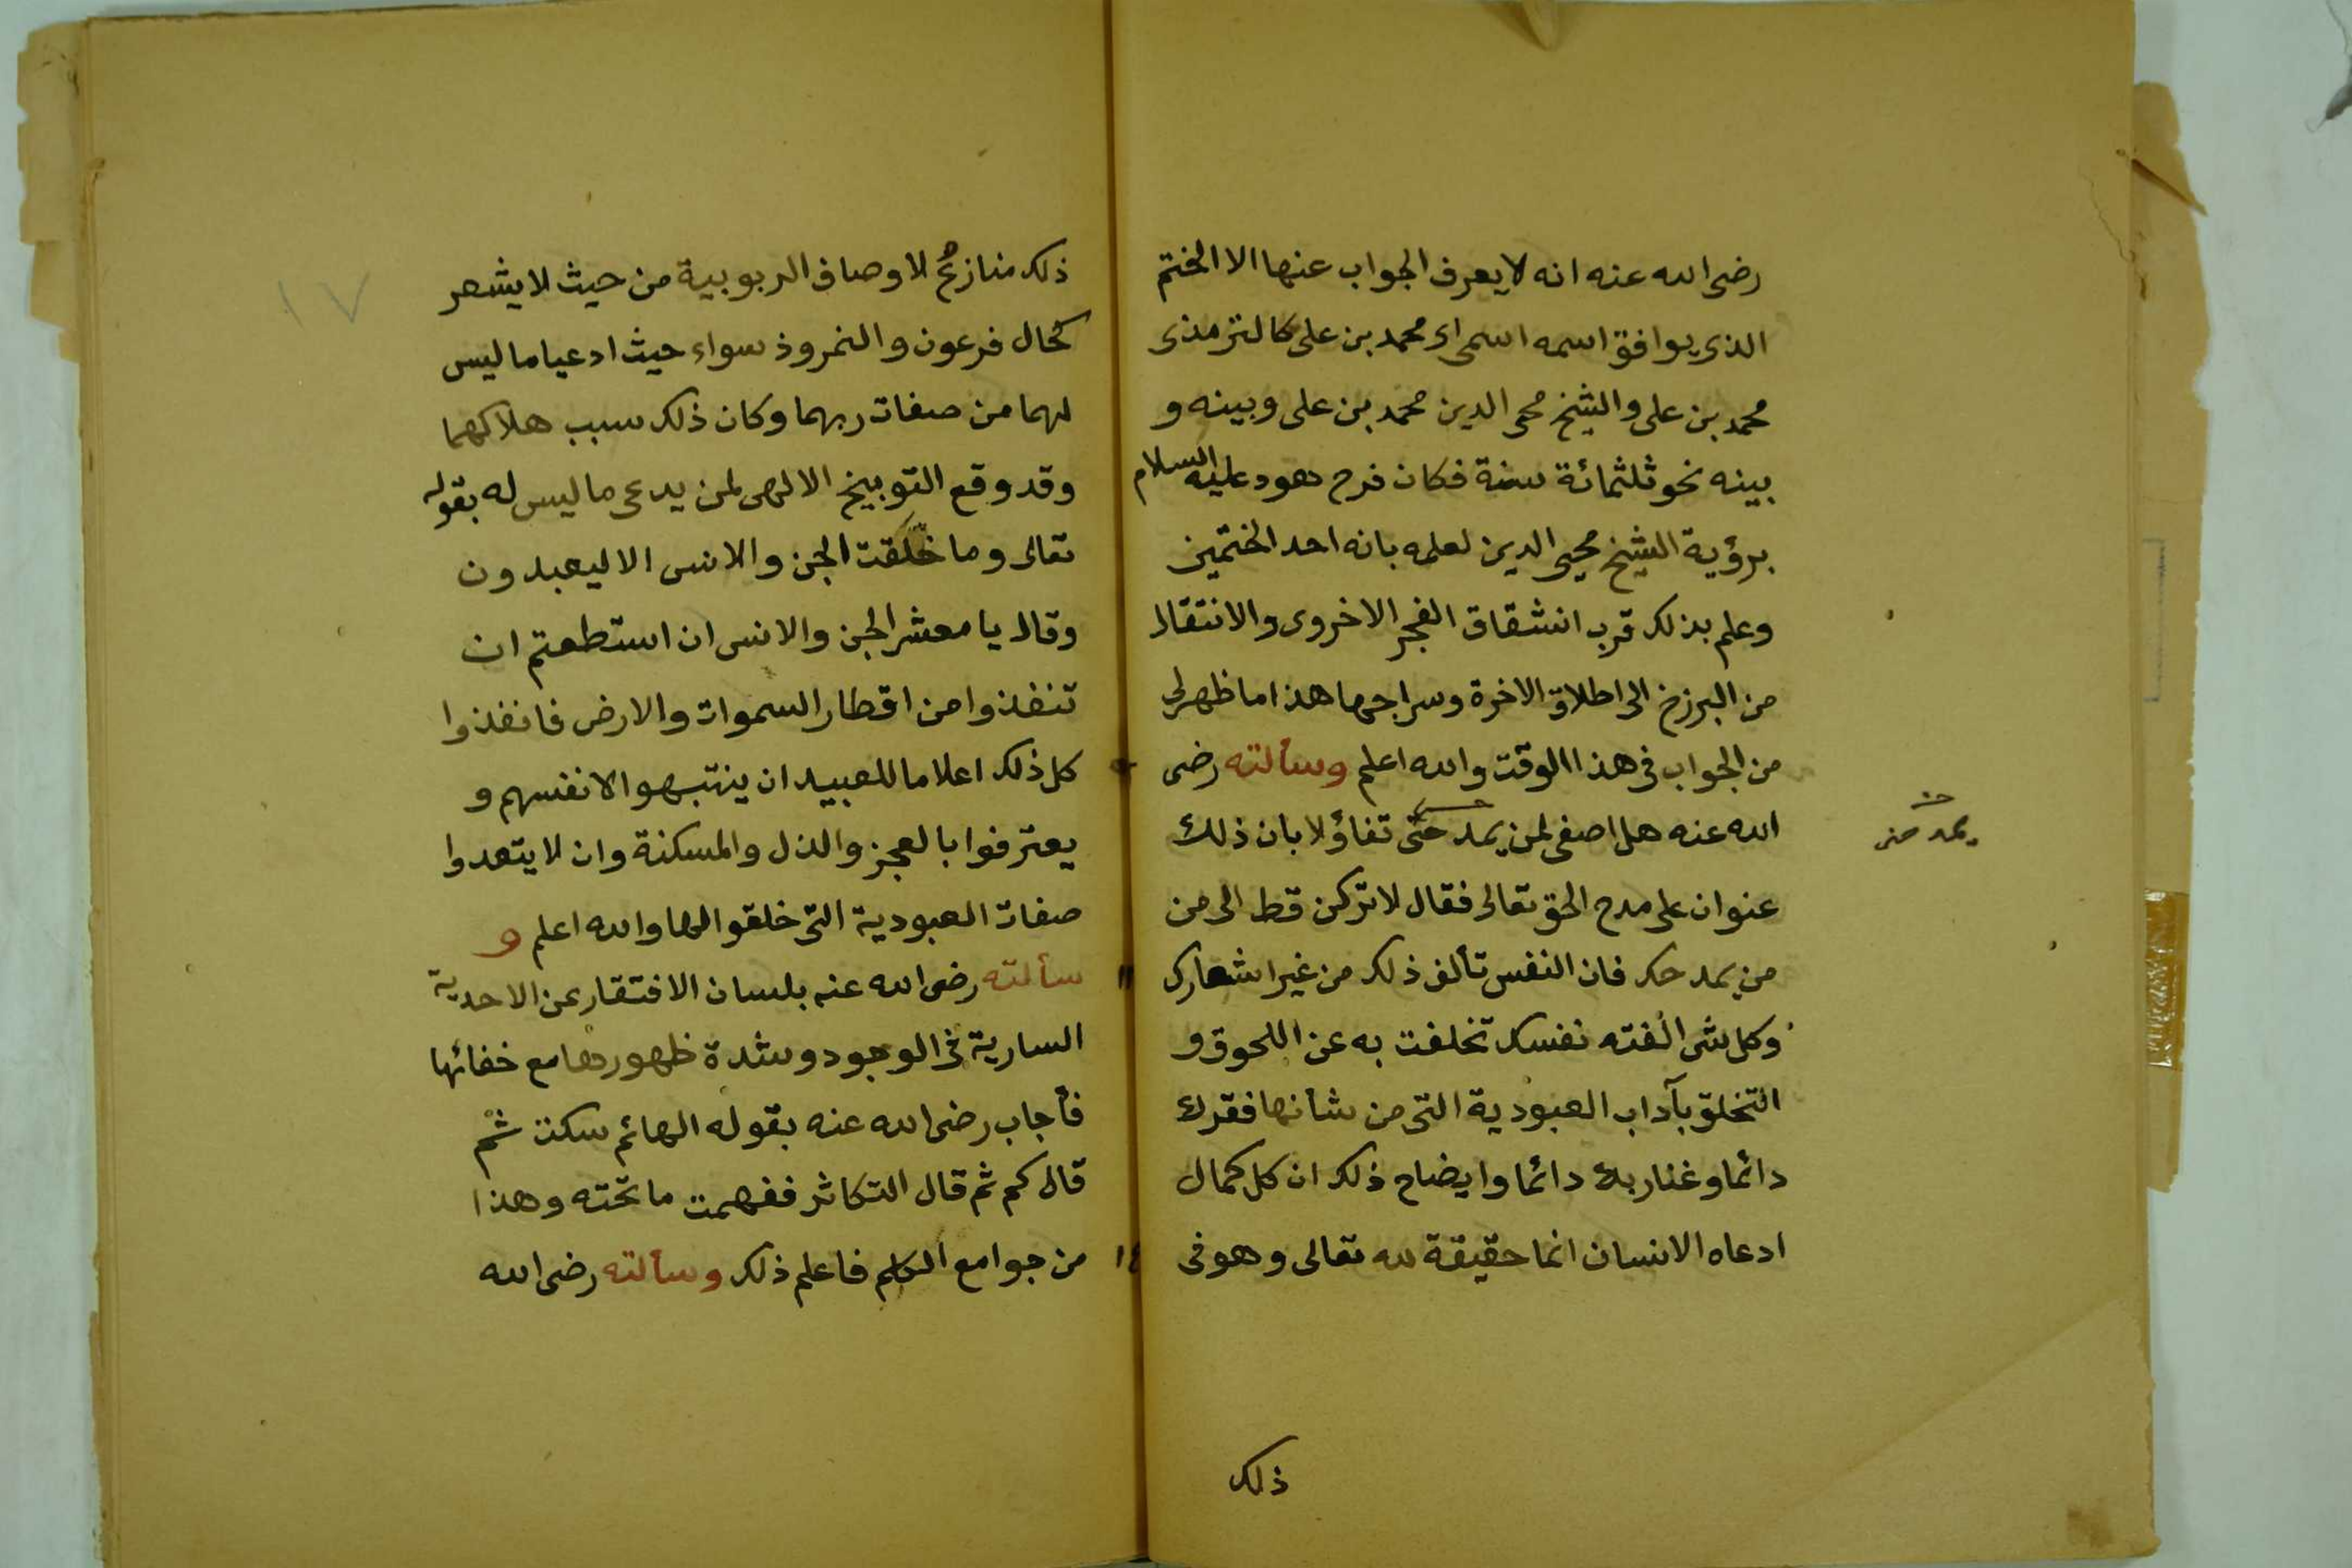 رضى الله عنه انه لا يعرف الجواب عنها الا الختم
الذى يوافق اسمه اسمى اى محمد بن على كالترمذى
محمد بن على والشيخ محى الدين محمد بن على وبينه و
بينه نحو ثلثمائة سنة فكان فرح هود عليه السلام
برؤية الشيخ محيى الدين لعلمه بانه احد الختمين
وعلم بذلك قرب انشقاق الفجر الاخروى والانتقال
من البرزخ الى اطلاق الاخرة وسراجها هذا ما ظهر لى
من الجواب فى هذا الوقت والله اعلم وسألته رضى
الله عنه هل اصغى لمن يمدحنى تفاؤلا بان ذلك
يمدحنى
عنوان على مدح الحق تعالى فقال لا تركن قط الى من
من يمدحك فان النفس تألف ذلك من غير اشعارك
وكل شى الفته نفسك تخلفت به عن اللحوق و
التخلق بآداب العبودية التى من شأنها فقرك
دائما وغنا ربك دائما وايضاح ذلك ان كل كمال
ادعاه الانسان انما حقيقة لله تعالى وهو فى
ذلك
١٧
ذلك منازع لاوصاف الربوبية من حيث لا يشعر
كحال فرعون والنمروذ سواء حيث ادعيا ما ليس
لهما من صفات ربهما وكان ذلك سبب هلاكهما
وقد وقع التوبيخ الالهى لمن يدعى ما ليس له بقوله
تعالى وما خلقت الجن والانس الا ليعبدون
وقال يا معشر الجن والانس ان استطعتم ان
تنفذوا من اقطار السموات والارض فانفذوا
كل ذلك اعلاما للعبيد ان ينتبهوا لانفسهم و
يعترفوا بالعجز والذل والمسكنة وان لا يتعدوا
صفات العبودية التى خلقوا لها والله اعلم و
سألته رضى الله عنه بلسان الافتقار عن الاحدية
السارية فى الوجود وشدة ظهورها مع خفائها
فأجاب رضى الله عنه بقوله الهائم سكت ثم
قال كم ثم قال التكاثر ففهمت ما تحته وهذا
من جوامع الكلم فاعلم ذلك وسألته رضى الله